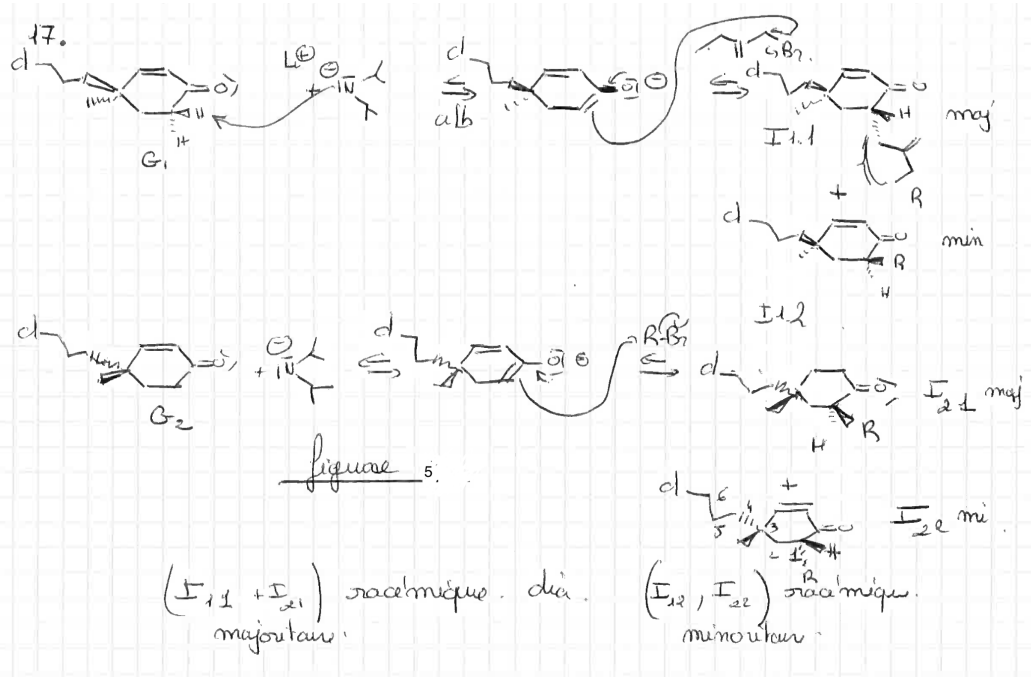 17.
Cl
Li⊕
⊖
+ |N
O
H
H
G₁
⇌
a/b
Cl
O ⊖
Br
⇌
Cl
O
H
maj
I1.1
R
+
Cl
O
R
H
min
I1.2
Cl
O
G₂
⊖
+ |N
⇌
Cl
O ⊖
R-Br
⇌
Cl
O
R
H
I₂₁ maj
figure 5.
+
Cl
6
5
4
3
2
1
O
H
R
I₂₂ mi.
(I₁₁ + I₂₁) racémique. dia. (I₁₂, I₂₂) racémique.
majoritaire. minoritaire.